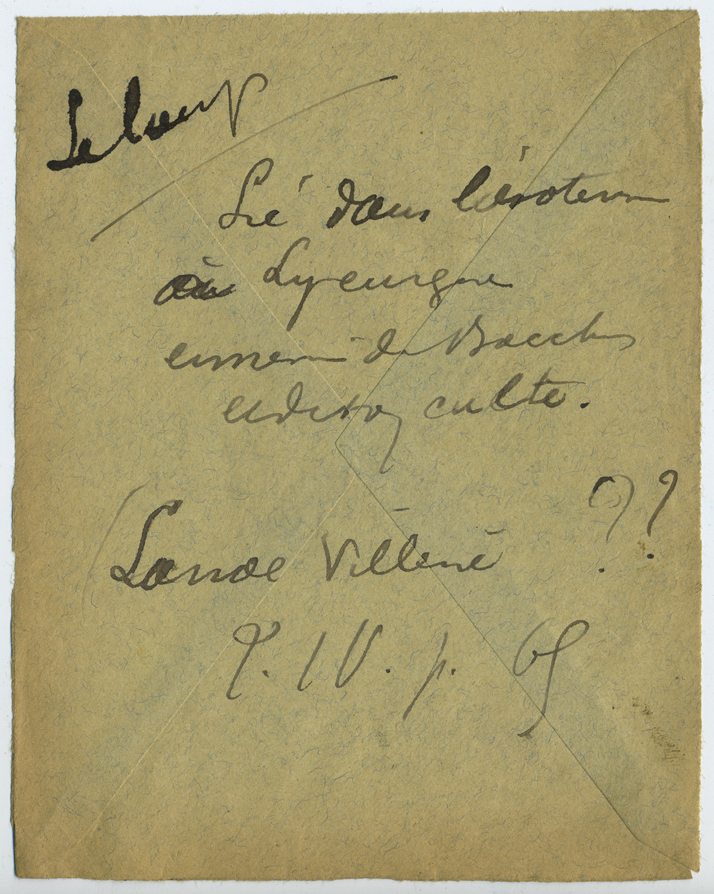 Le loup
Lié dans l'ésoterism
au Lycurgue
ennemi de Bacchus
et de son culte.
Lanoe Villene ??
T. IV. p. 65